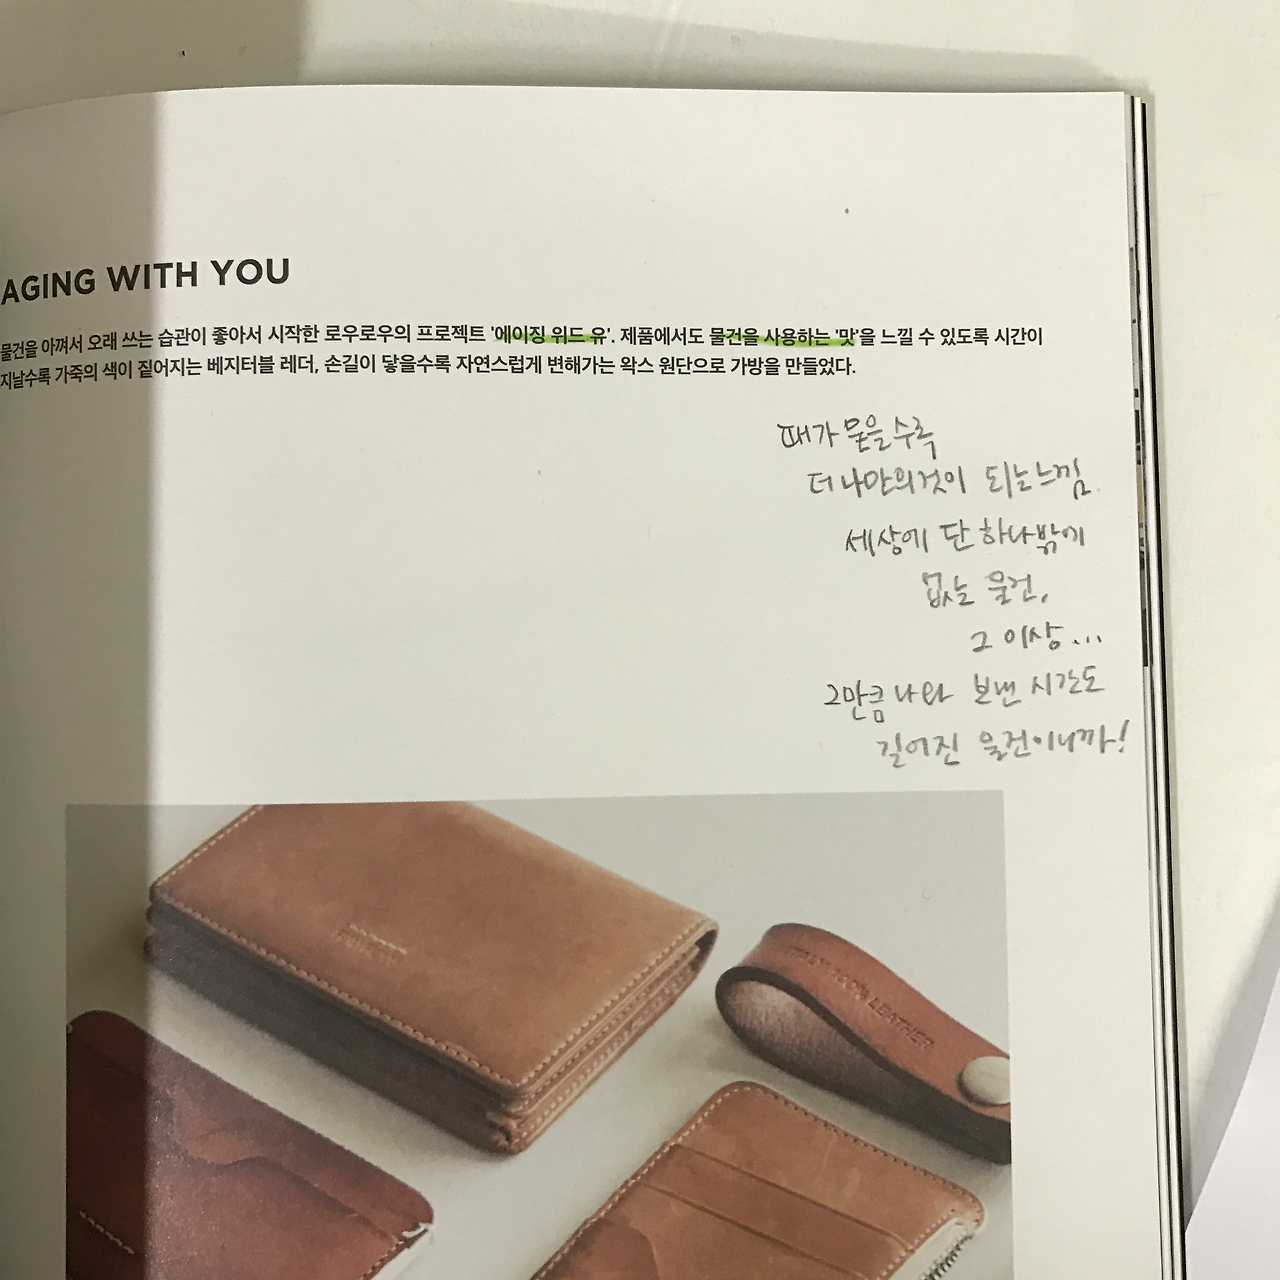 AGING WITH YOU
물건을 아껴서 오래 쓰는 습관이 좋아서 시작한 로우로우의 프로젝트 '에이징 위드 유'. 제품에서도 물건을 사용하는 '맛'을 느낄 수 있도록 시간이
지날수록 가죽의 색이 짙어지는 베지터블 레더, 손길이 닿을수록 자연스럽게 변해가는 왁스 원단으로 가방을 만들었다.
때가 묻을수록
더 나만의것이 되는느낌.
세상에 단 하나밖에
없는 물건,
그 이상...
그만큼 나와 보낸 시간도
길어진 물건이니까!
100% LEATHER